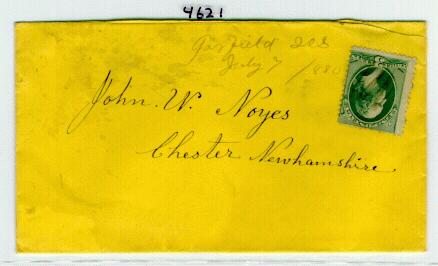 4621
Garfield
July 7 1880
John. W. Noyes
Chester Newhamshire.